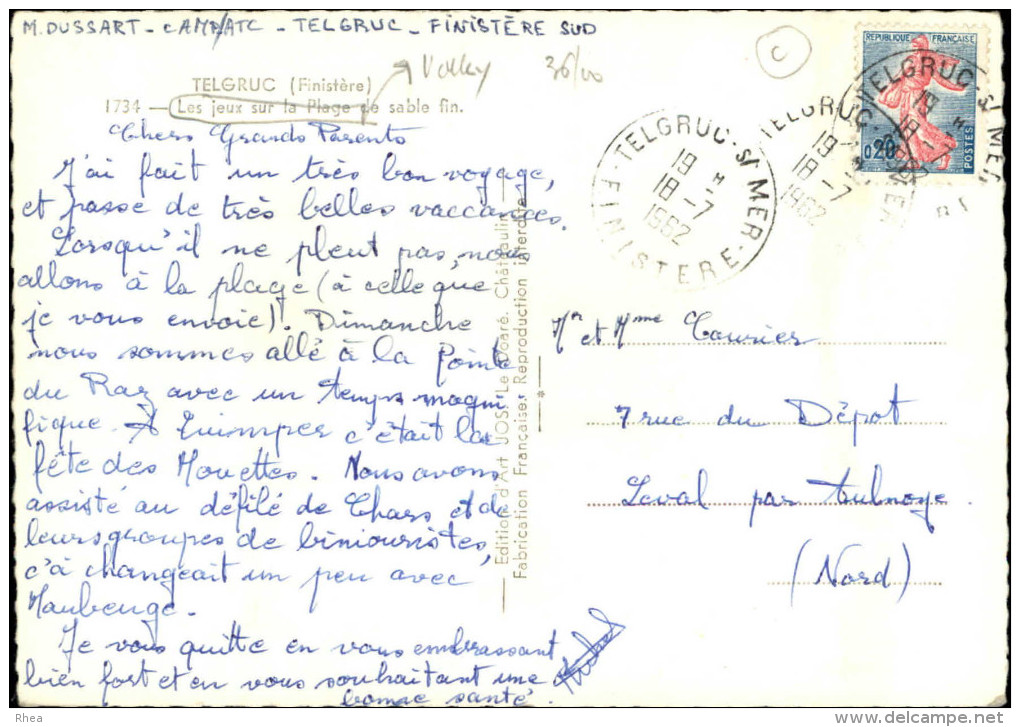 M. DUSSART - CAMP ATC - TELGRUC - FINISTÈRE SUD
TELGRUC (Finistère)
1734 — Les jeux sur la Plage de sable fin.
Volley
36/00
C
REPUBLIQUE FRANÇAISE
0,20
POSTES
TELGRUC-S/MER
19 H
18-7
1962
FINISTERE
TELGRUC
19 H
18-7
1962
TELGRUC-S/MER
19 H
18-7
Chers Grands Parents
J'ai fait un très bon voyage,
et passe de très belles vaccances.
Lorsqu'il ne pleut pas, nous
allons à la plage (à celle que
je vous envoie)! Dimanche
nous sommes allé à la Pointe
du Raz avec un temps magni
fique. À Quimper c'était la
fête des Mouettes. Nous avons
assisté au défilé de Chars et de
leurs groupes de biniouristes,
c'à changeait un peu avec
Maubeuge.
Je vous quitte en vous embrassant
bien fort et en vous souhaitant une
bonne santé.
Editions d'Art "JOS" Le Doaré. Châteaulin
Fabrication Française. Reproduction interdite
Mr et Mme Courier
7 rue du Dépôt
Leval par Aulnoye
(Nord)
©Rhea
delcampe.net